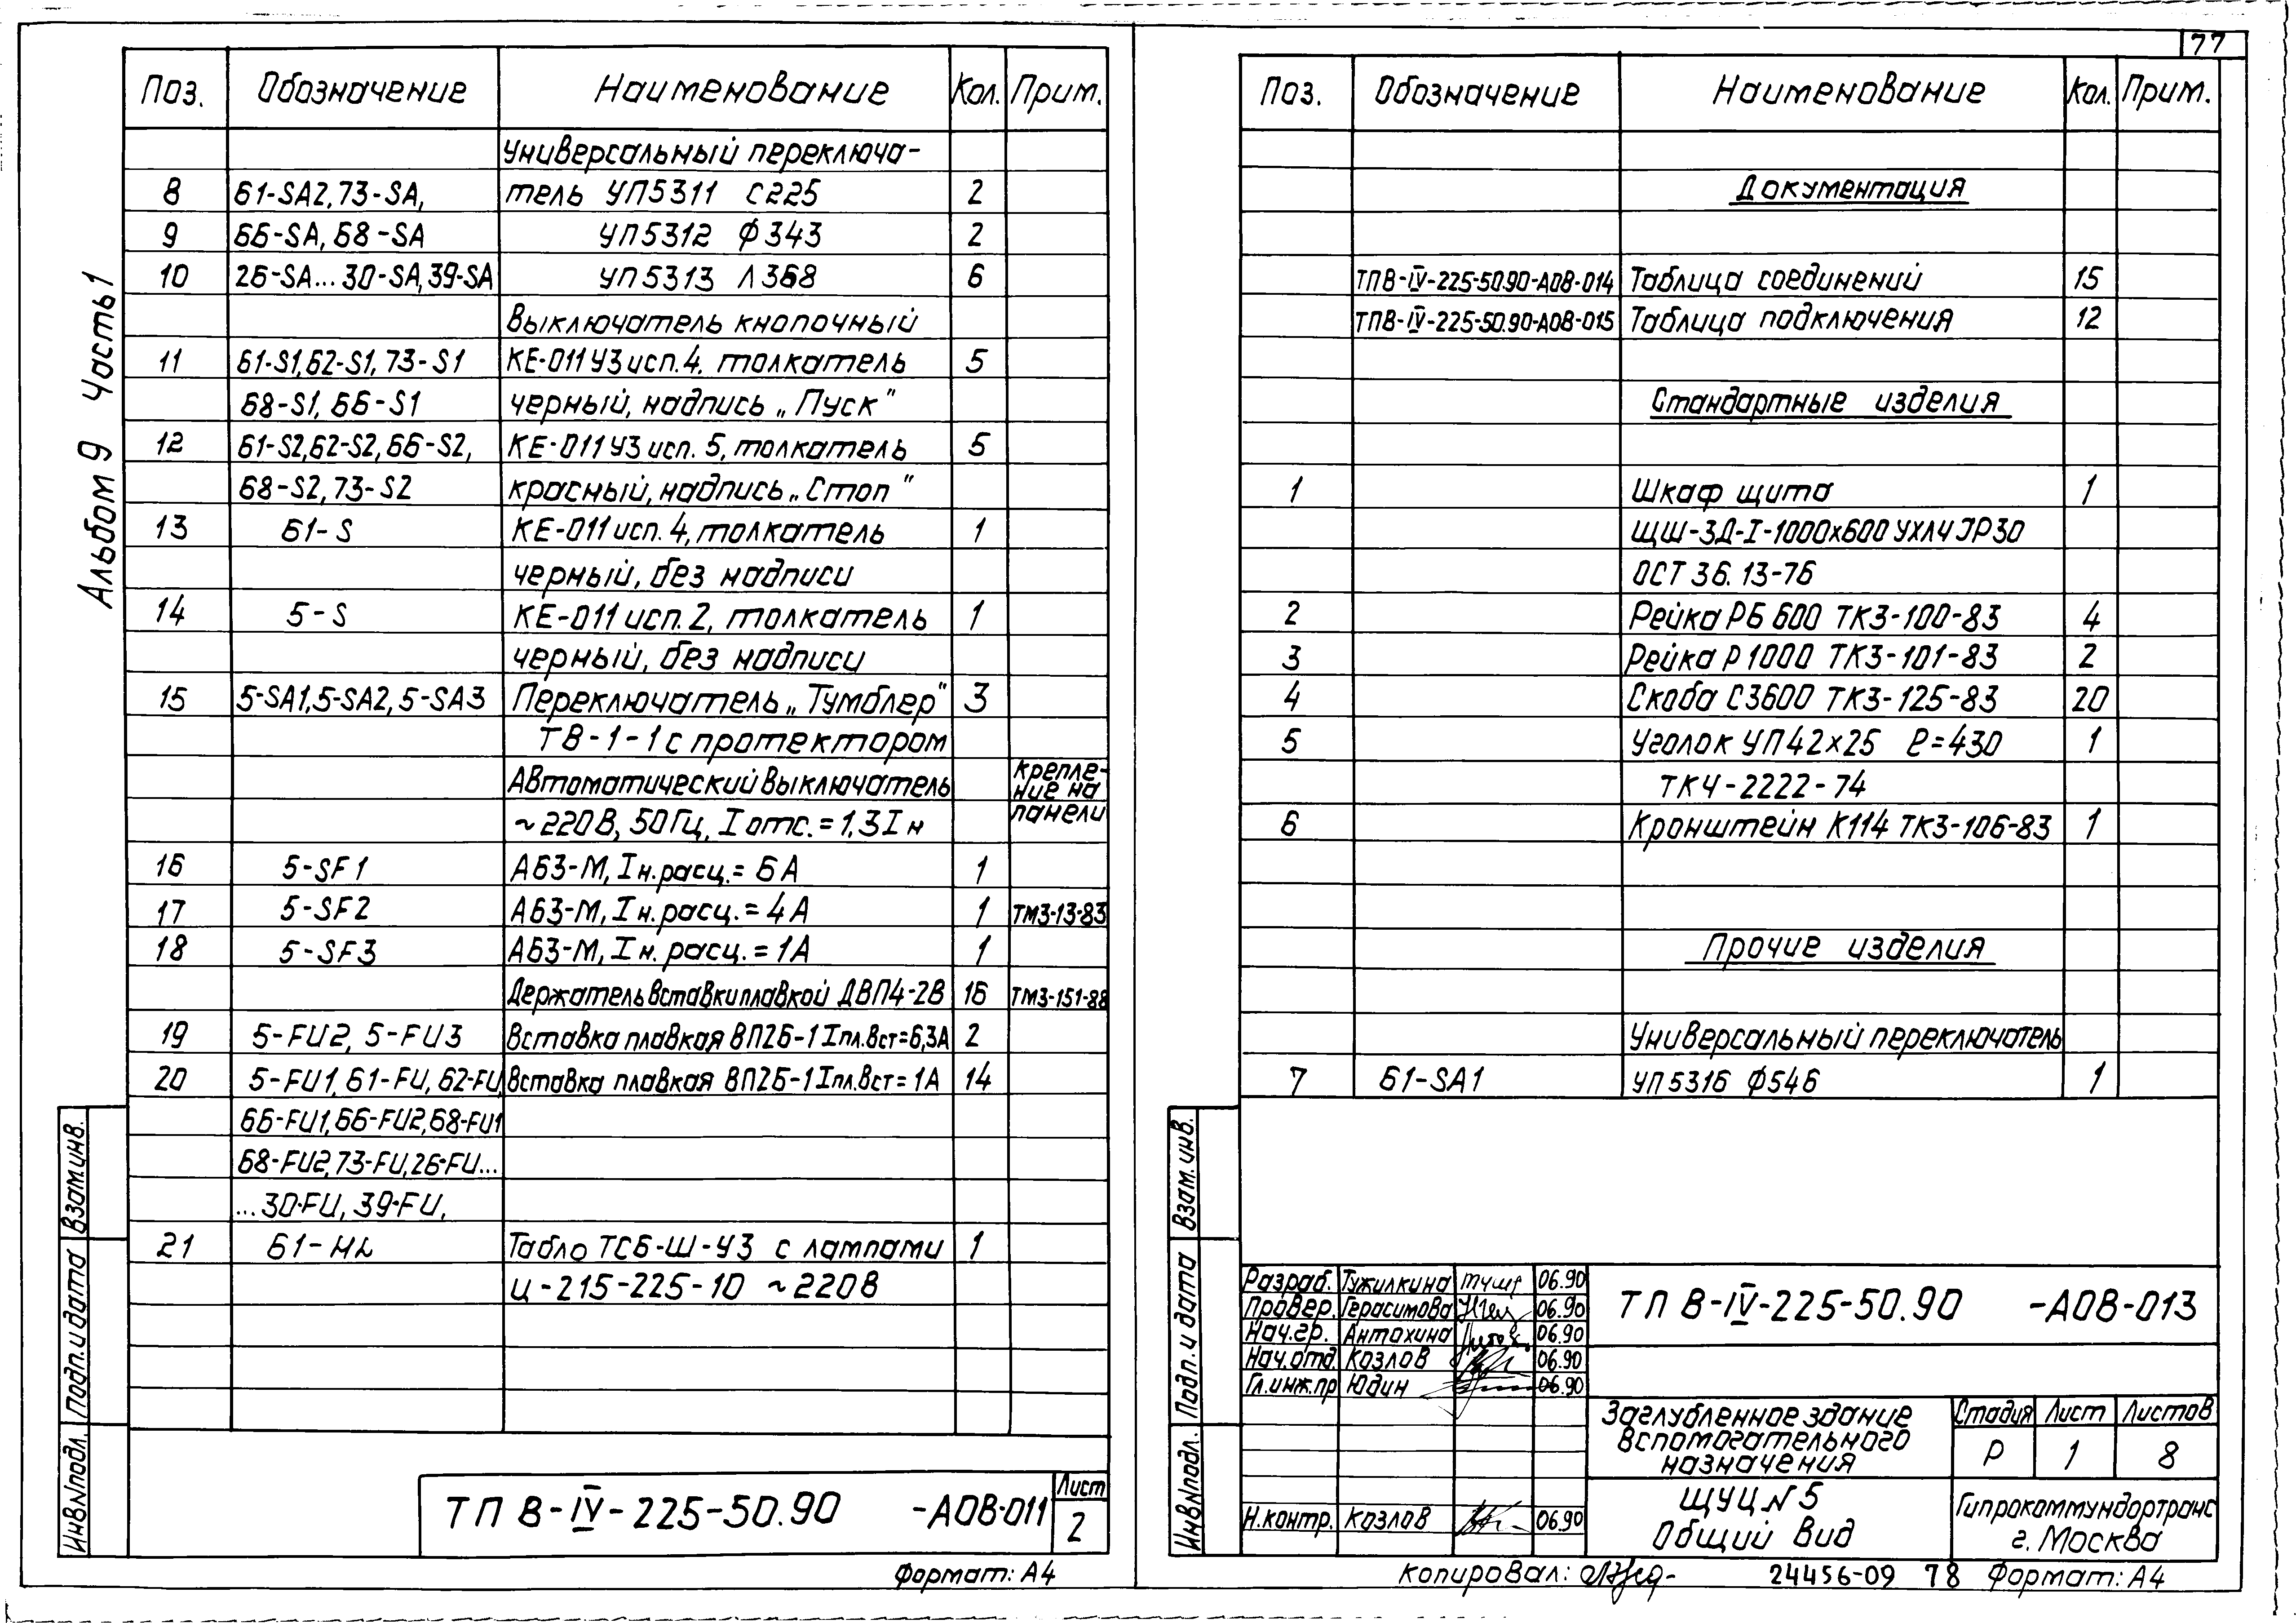 Альбом 9 Часть 1
Поз. Обозначение Наименование Кол. Прим.
Универсальный переключа-
8 61-SA2, 73-SA, тель УП5311 С225 2
9 66-SA, 68-SA УП5312 Ф343 2
10 26-SA...30-SA, 39-SA УП5313 Л368 6
Выключатель кнопочный
11 61-S1, 62-S1, 73-S1 КЕ-011У3 исп. 4, толкатель 5
68-S1, 66-S1 черный, надпись „Пуск"
12 61-S2, 62-S2, 66-S2, КЕ-011У3 исп. 5, толкатель 5
68-S2, 73-S2 красный, надпись „Стоп"
13 61-S КЕ-011 исп. 4, толкатель 1
черный, без надписи
14 5-S КЕ-011 исп. 2, толкатель 1
черный, без надписи
15 5-SA1, 5-SA2, 5-SA3 Переключатель „Тумблер" 3
ТВ-1-1 с протектором
Автоматический выключатель крепле-
ние на
~220В, 50Гц, Iотс.=1,3Iн панели
16 5-SF1 А63-М, Iн.расц.=6А 1
17 5-SF2 А63-М, Iн.расц.=4А 1 ТМ3-13-83
18 5-SF3 А63-М, Iн.расц.=1А 1
Держатель вставки плавкой ДВП4-2В 16 ТМ3-151-88
19 5-FU2, 5-FU3 Вставка плавкая ВП2Б-1 Iпл.вст=6,3А 2
20 5-FU1, 61-FU, 62-FU, Вставка плавкая ВП2Б-1 Iпл.вст=1А 14
66-FU1, 66-FU2, 68-FU1
68-FU2, 73-FU, 26-FU...
...30-FU, 39-FU,
21 61-HL Табло ТСБ-Ш-У3 с лампами 1
Ц-215-225-10 ~220В
Взам.инв.
Подп. и дата
Инв№подл.
ТП В-IV-225-50.90 -АОВ-011
Лист
2
Формат: А4
77
Поз. Обозначение Наименование Кол. Прим.
Документация
ТПВ-IV-225-50.90-АОВ-014 Таблица соединений 15
ТПВ-IV-225-50.90-АОВ-015 Таблица подключения 12
Стандартные изделия
1 Шкаф щита 1
ЩШ-ЗД-I-1000х600 УХЛ4 IР30
ОСТ 36.13-76
2 Рейка РБ 600 ТК3-100-83 4
3 Рейка Р1000 ТК3-101-83 2
4 Скоба С3600 ТК3-125-83 20
5 Уголок УП42х25 ℓ=430 1
ТК4-2222-74
6 Кронштейн К114 ТК3-106-83 1
Прочие изделия
Универсальный переключатель
7 61-SA1 УП5316 Ф546 1
Взам.инв.
Подп. и дата
Инв№подл.
Разраб. Тужилкина 06.90
Провер. Герасимова 06.90
Нач.гр. Антохина 06.90
Нач.отд. Козлов 06.90
Гл.инж.пр Юдин 06.90
Н.контр. Козлов 06.90
ТП В-IV-225-50.90 -АОВ-013
Заглубленное здание
вспомогательного
назначения
Стадия Лист Листов
Р 1 8
ЩУЦ№5
Общий вид
Гипрокоммундортранс
г. Москва
Копировал: 24456-09 78 Формат: А4